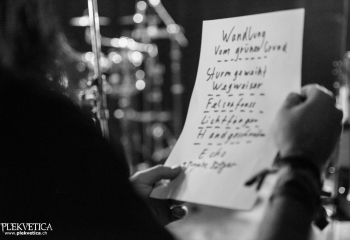 Wandlung
Vom grünen Grund
Sturmgeweiht
Wegweiser
Felsenfest
Lichtfänger
Handgeschrieben
Echo
PLEKVETICA
www.plekvetica.ch